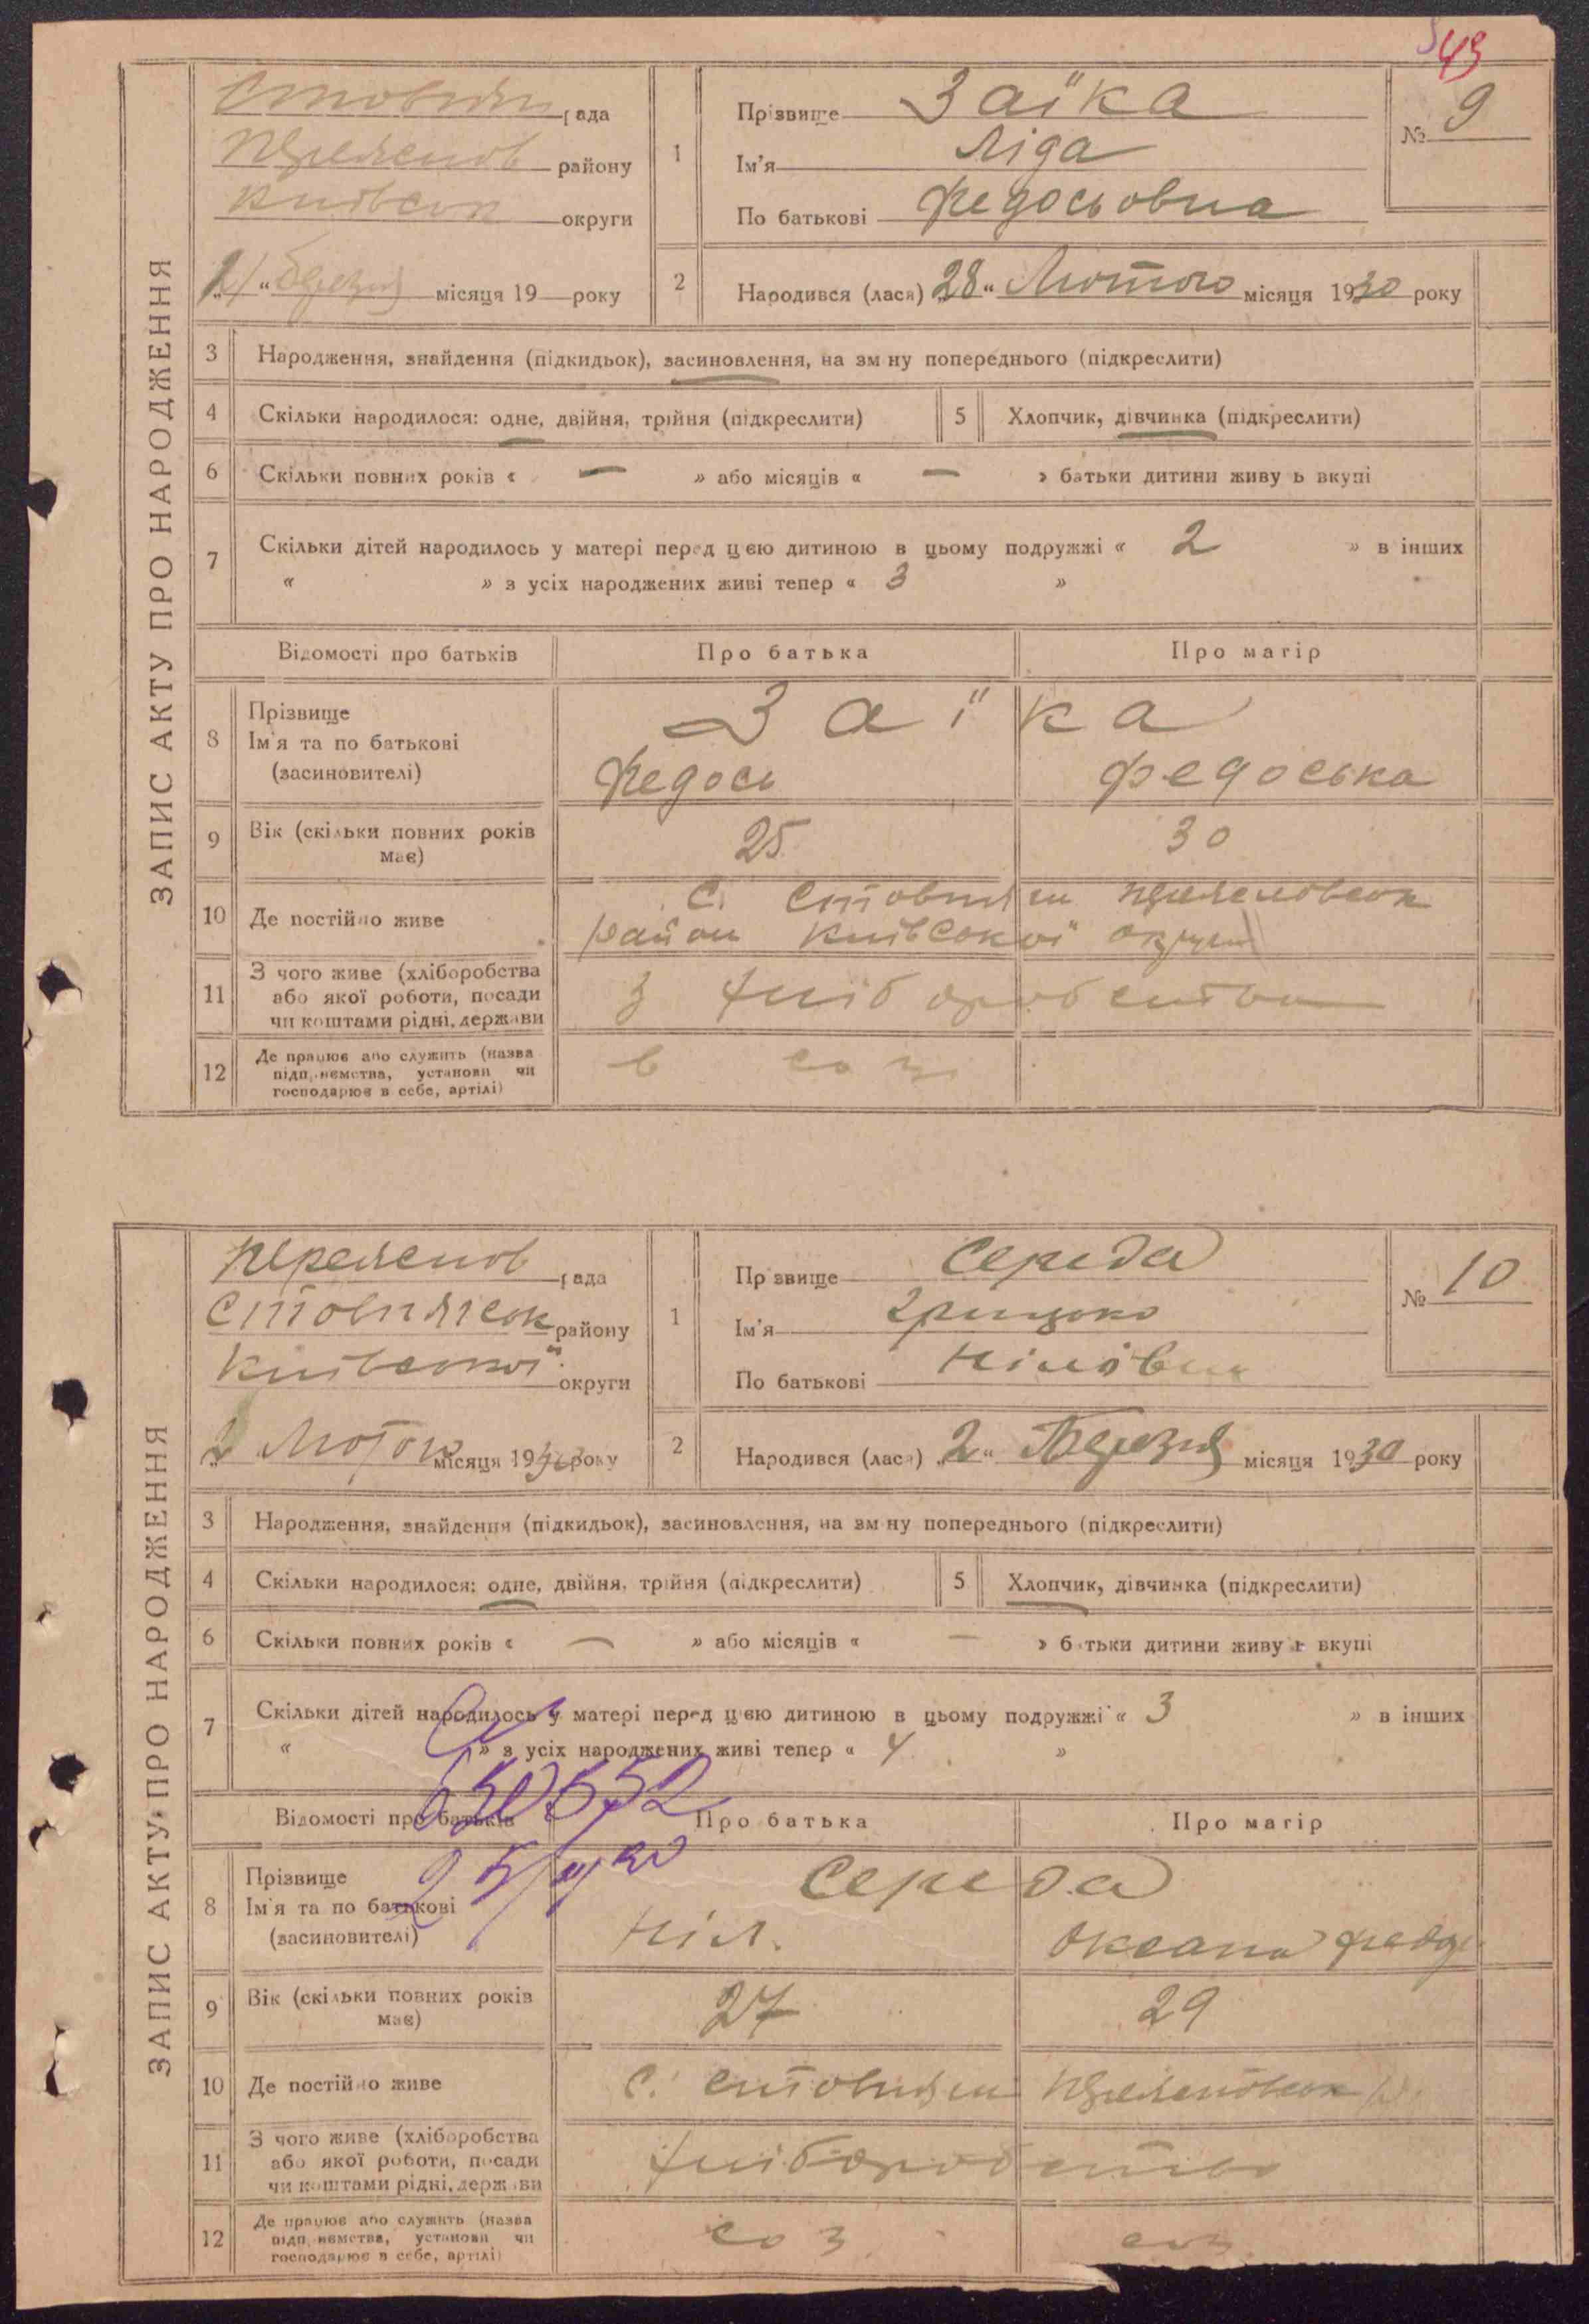 43
ЗАПИС АКТУ ПРО НАРОДЖЕННЯ
рада
району
округи
місяця 19 року
1
Прізвище Заїка
Ім'я Ліда
По батькові Федосьовна
№ 9
2
Народився (лася) „28“ Лютого місяця 1930 року
3 Народження, знайдення (підкидьок), засиновлення, на зм ну попереднього (підкреслити)
4 Скільки народилося: одне, двійня, трійня (підкреслити) 5 Хлопчик, дівчинка (підкреслити)
6 Скільки повних років « — » або місяців « — » батьки дитини живу ь вкупі
7 Скільки дітей народилось у матері перед цією дитиною в цьому подружжі « 2 » в інших
« » з усіх народжених живі тепер « 3 »
Відомості про батьків Про батька Про матір
8 Прізвище
Ім'я та по батькові
(засиновителі)
Заїка
Федось Федоська
9 Вік (скільки повних років має) 25 30
10 Де постійно живе с. Стовпяги
район Київської округи
11 З чого живе (хліборобства
або якої роботи, посади
чи коштами рідні, держави
з хліборобства
12 Де працює або служить (назва
підприємства, установи чи
господарює в себе, артілі)
в соз
ЗАПИС АКТУ ПРО НАРОДЖЕННЯ
рада
району
Київської округи
місяця 1930 року
1
Прізвище Середа
Ім'я Грицько
По батькові Нілович
№ 10
2
Народився (лася) „2“ Березня місяця 1930 року
3 Народження, знайдення (підкидьок), засиновлення, на зм ну попереднього (підкреслити)
4 Скільки народилося: одне, двійня, трійня (підкреслити) 5 Хлопчик, дівчинка (підкреслити)
6 Скільки повних років « — » або місяців « — » батьки дитини живу ь вкупі
7 Скільки дітей народилось у матері перед цією дитиною в цьому подружжі « 3 » в інших
« » з усіх народжених живі тепер « 4 »
Відомості про батьків Про батька Про матір
8 Прізвище
Ім'я та по батькові
(засиновителі)
Середа
Ніл.
9 Вік (скільки повних років має) 27 29
10 Де постійно живе с. Стовпяги
11 З чого живе (хліборобства
або якої роботи, посади
чи коштами рідні, держави
хліборобство
12 Де працює або служить (назва
підприємства, установи чи
господарює в себе, артілі)
соз соз